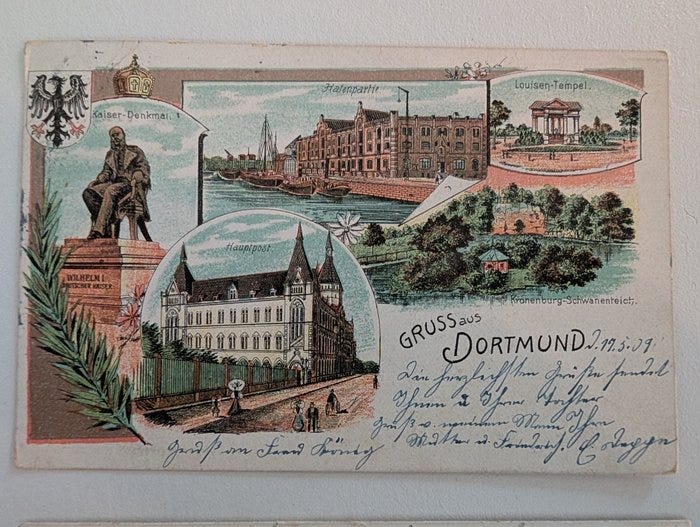 Kaiser-Denkmal.
WILHELM I.
DEUTSCHER KAISER.
Hafenpartie
Louisen-Tempel.
Hauptpost.
Kronenburg-Schwanenteich.
GRUSS aus
DORTMUND
19.5.09.
Die herzlichsten Grüße sendet
Ihnen u Ihrer Tochter
Gruß v. meinem Mann Ihre
Mutter u. Friedrich.
Gruß an Frau König